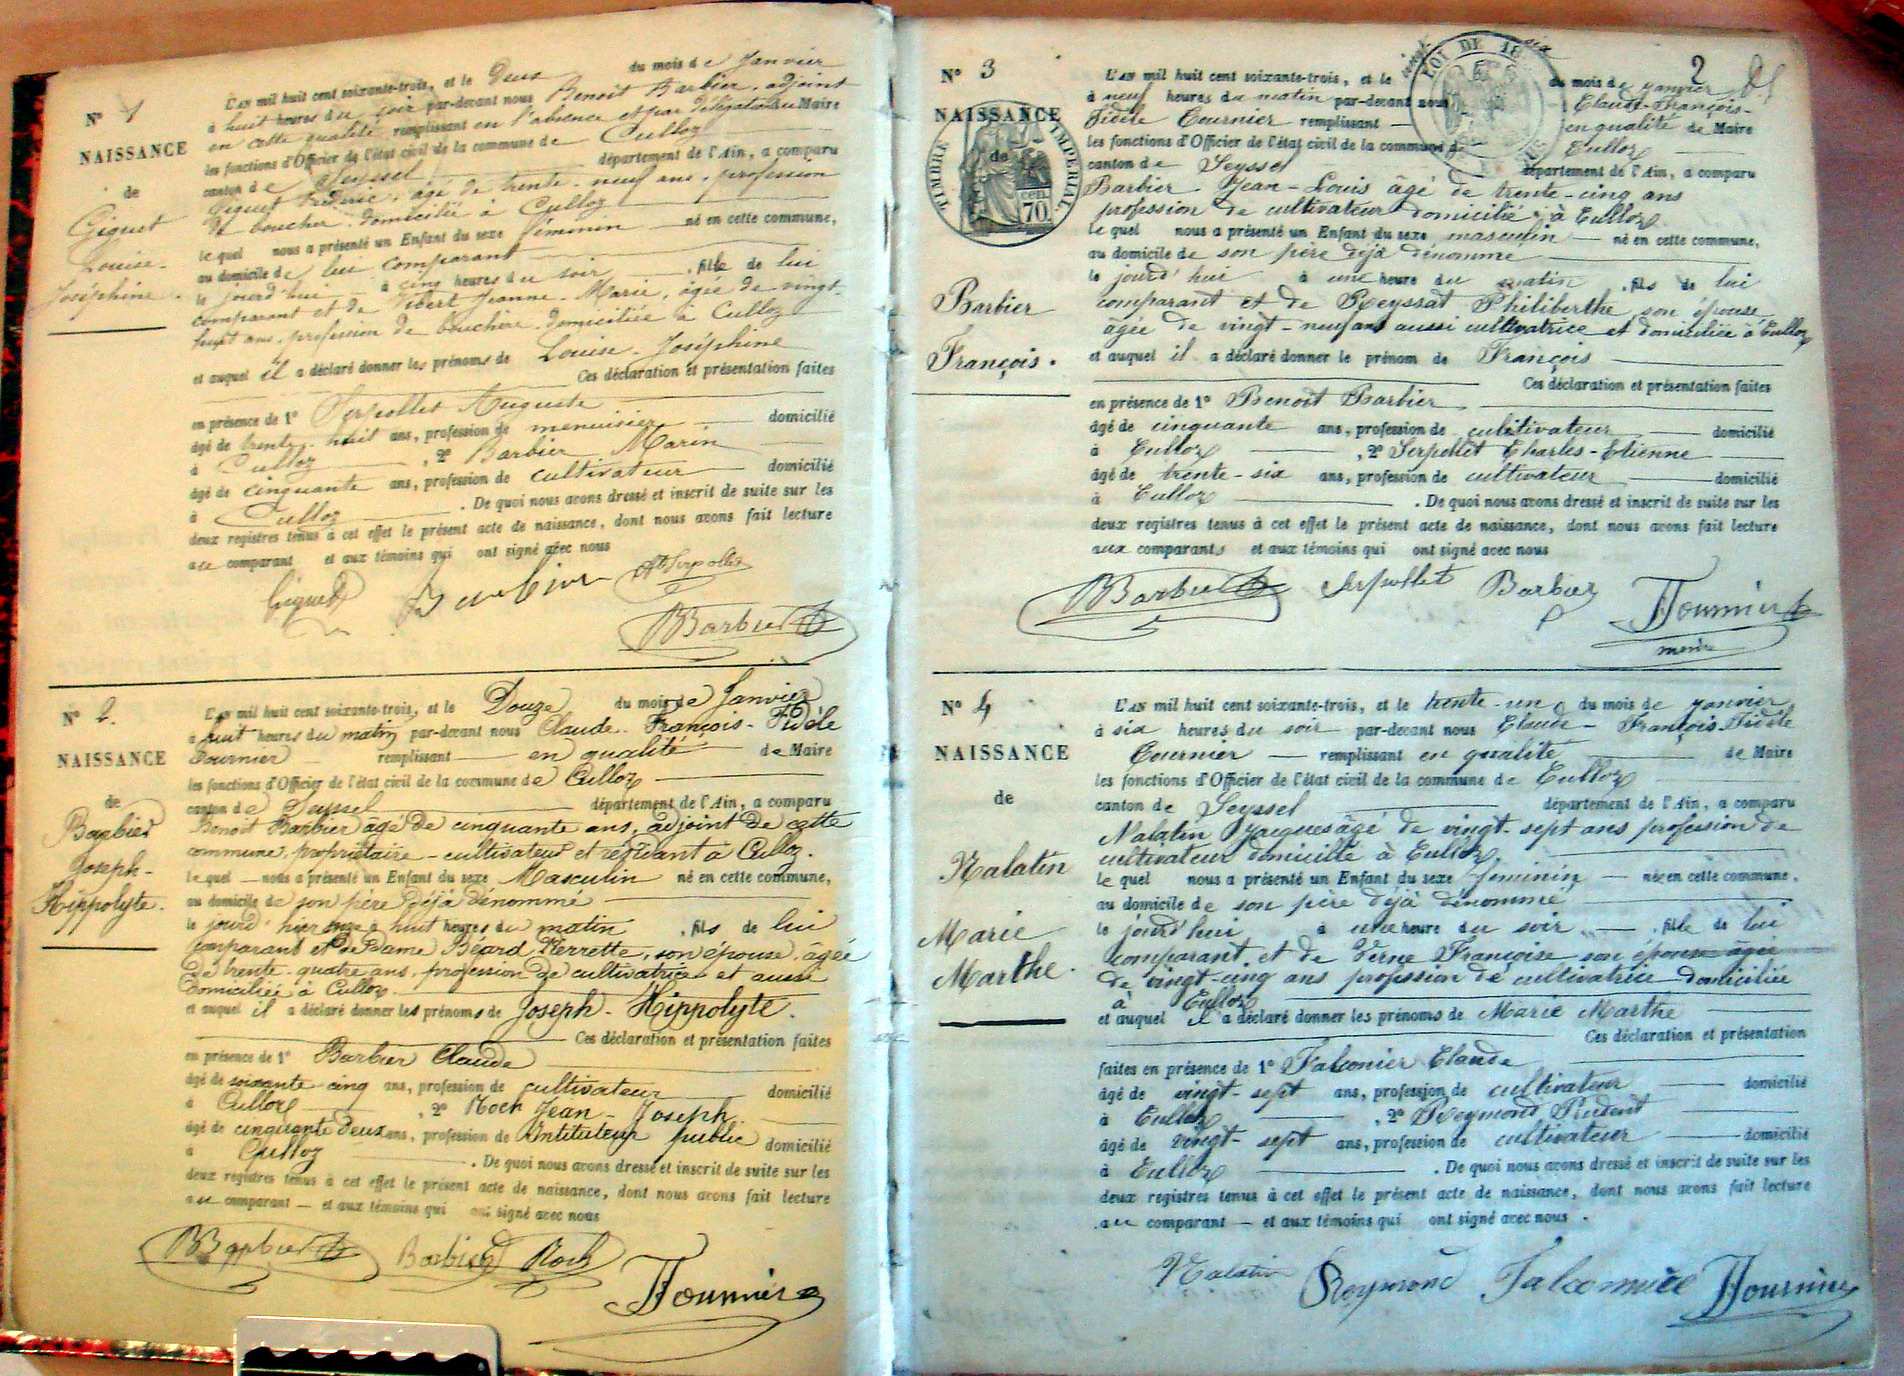 N° 1
NAISSANCE
de
Giguet
Louise-
Joséphine.
L'AN mil huit cent soixante-trois, et le Deux du mois de Janvier
à huit heures du soir par-devant nous Benoit Barbier, adjoint
en cette qualité remplissant en l'absence et par délégation du Maire
les fonctions d'Officier de l'état civil de la commune de Culloz
canton de Seyssel département de l'Ain, a comparu
Giguet Frédéric, âgé de trente-neuf ans, profession
de boucher domicilié à Culloz
lequel nous a présenté un Enfant du sexe féminin né en cette commune,
au domicile de lui comparant
le jourd'hui à cinq heures du soir, fille de lui
comparant et de Vibert Jeanne-Marie, âgée de vingt-
huit ans, profession de bouchère domiciliée à Culloz
et auquel il a déclaré donner les prénoms de Louise-Joséphine
Ces déclaration et présentation faites
en présence de 1° Serpollet Auguste
âgé de trente-huit ans, profession de menuisier domicilié
à Culloz, 2° Barbier Marin
âgé de cinquante ans, profession de cultivateur domicilié
à Culloz. De quoi nous avons dressé et inscrit de suite sur les
deux registres tenus à cet effet le présent acte de naissance, dont nous avons fait lecture
au comparant et aux témoins qui ont signé avec nous
Giguet Barbier Ate Serpollet
BBarbier
N° 2.
NAISSANCE
de
Barbier
Joseph-
Hippolyte.
L'AN mil huit cent soixante-trois, et le Douze du mois de Janvier
à huit heures du matin par-devant nous Claude-François-Fidèle
Fournier remplissant en qualité de Maire
les fonctions d'Officier de l'état civil de la commune de Culloz
canton de Seyssel département de l'Ain, a comparu
Benoit Barbier âgé de cinquante ans, adjoint de cette
commune, propriétaire-cultivateur et résidant à Culloz.
lequel nous a présenté un Enfant du sexe Masculin né en cette commune,
au domicile de son père déjà dénommé
le jourd'hier onze à huit heures du matin, fils de lui
comparant et de Dame Béard Perrette, son épouse, âgée
de trente-quatre ans, profession de cultivatrice et aussi
domiciliée à Culloz
et auquel il a déclaré donner les prénoms de Joseph-Hippolyte.
Ces déclaration et présentation faites
en présence de 1° Barbier Claude
âgé de soixante-cinq ans, profession de cultivateur domicilié
à Culloz, 2° Roch Jean-Joseph
âgé de cinquante deux ans, profession de Instituteur public domicilié
à Culloz. De quoi nous avons dressé et inscrit de suite sur les
deux registres tenus à cet effet le présent acte de naissance, dont nous avons fait lecture
au comparant et aux témoins qui ont signé avec nous
BBarbier Barbier Roch
Fournier
2
N° 3
NAISSANCE
de
TIMBRE IMPERIAL
cen.
70.
LOI DE 18
Barbier
François.
L'AN mil huit cent soixante-trois, et le vingt six du mois de janvier
à neuf heures du matin par-devant nous Claude-François-
Fidèle Fournier remplissant en qualité de Maire
les fonctions d'Officier de l'état civil de la commune de Culloz
canton de Seyssel département de l'Ain, a comparu
Barbier Jean-Louis âgé de trente-cinq ans
profession de cultivateur domicilié à Culloz
lequel nous a présenté un Enfant du sexe masculin né en cette commune,
au domicile de son père déjà dénommé
le jourd'hui à une heure du matin, fils de lui
comparant et de Reyssat Philiberthe son épouse
âgée de vingt-neuf ans aussi cultivatrice et domiciliée à Culloz
et auquel il a déclaré donner le prénom de François
Ces déclaration et présentation faites
en présence de 1° Benoit Barbier
âgé de cinquante ans, profession de cultivateur domicilié
à Culloz, 2° Serpollet Charles-Etienne
âgé de trente-six ans, profession de cultivateur domicilié
à Culloz. De quoi nous avons dressé et inscrit de suite sur les
deux registres tenus à cet effet le présent acte de naissance, dont nous avons fait lecture
aux comparants et aux témoins qui ont signé avec nous
BBarbier Serpollet Barbier Fournier
maire
N° 4
NAISSANCE
de
Nalatin
Marie
Marthe.
L'AN mil huit cent soixante-trois, et le trente-un du mois de janvier
à six heures du soir par-devant nous Claude-François Fidèle
Fournier remplissant en qualité de Maire
les fonctions d'Officier de l'état civil de la commune de Culloz
canton de Seyssel département de l'Ain, a comparu
Nalatin Jacques âgé de vingt-sept ans profession de
cultivateur domicilié à Culloz,
lequel nous a présenté un Enfant du sexe féminin née en cette commune,
au domicile de son père déjà dénommé
le jourd'hui à une heure du soir, fille de lui
comparant et de Verne Françoise son épouse âgée
de vingt-cinq ans profession de cultivatrice domiciliée
à Culloz
et auquel il a déclaré donner les prénoms de Marie Marthe
Ces déclaration et présentation
faites en présence de 1° Falconier Claude
âgé de vingt-sept ans, profession de cultivateur domicilié
à Culloz, 2° Reymond Prudent
âgé de vingt-sept ans, profession de cultivateur domicilié
à Culloz. De quoi nous avons dressé et inscrit de suite sur les
deux registres tenus à cet effet le présent acte de naissance, dont nous avons fait lecture
au comparant et aux témoins qui ont signé avec nous.
Nalatin Reymond Falconnier Fournier